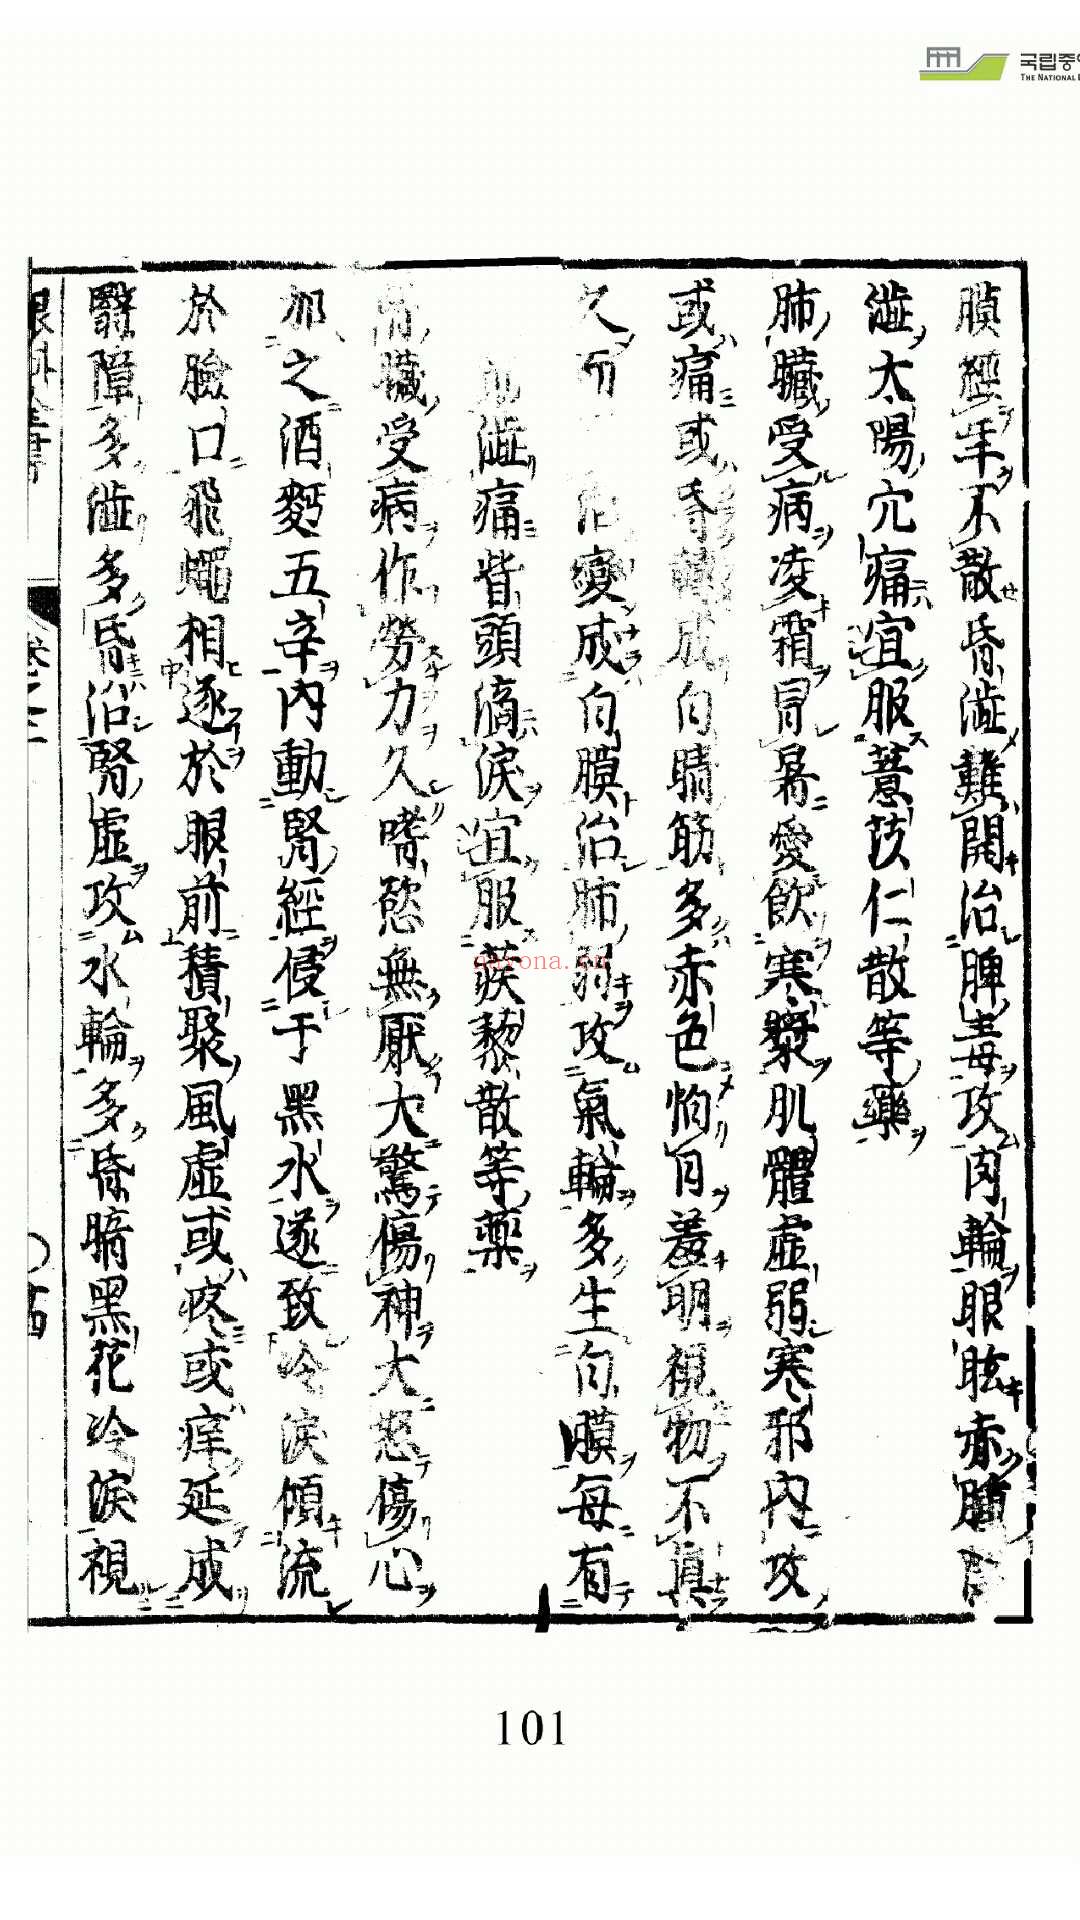 국립중
THE NATIONAL
膜經年不散昏澁難開治脾毒攻肉輪眼眩赤
澁太陽穴痛宜服薏苡仁散等藥
肺臟受病凌霜冒暑愛飲寒漿肌體虛弱寒邪內攻
或痛或昏成白睛筋多赤色怕日羞明視物不真
久而治變成白膜治肺弱攻氣輪多生白膜每有
澁痛眥頭滴淚宜服蒺藜散等藥
腎臟受病作勞力久嗜慾無厭大驚傷神大怒傷心
加之酒麪五辛內動腎經侵于黑水遂致冷淚傾流
於臉口飛蠅相逐於眼前積聚風虛或疼或痒延成
翳障多澁多昏治腎虛攻水輪多昏暗黑花冷淚視
眼科全書
卷之二
101